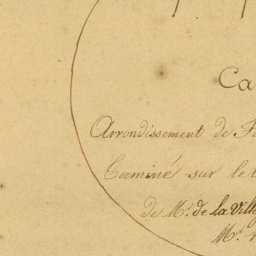 Ca
Arrondissement de F
Terminé sur le t
de Mr. de la Ville
Mr.